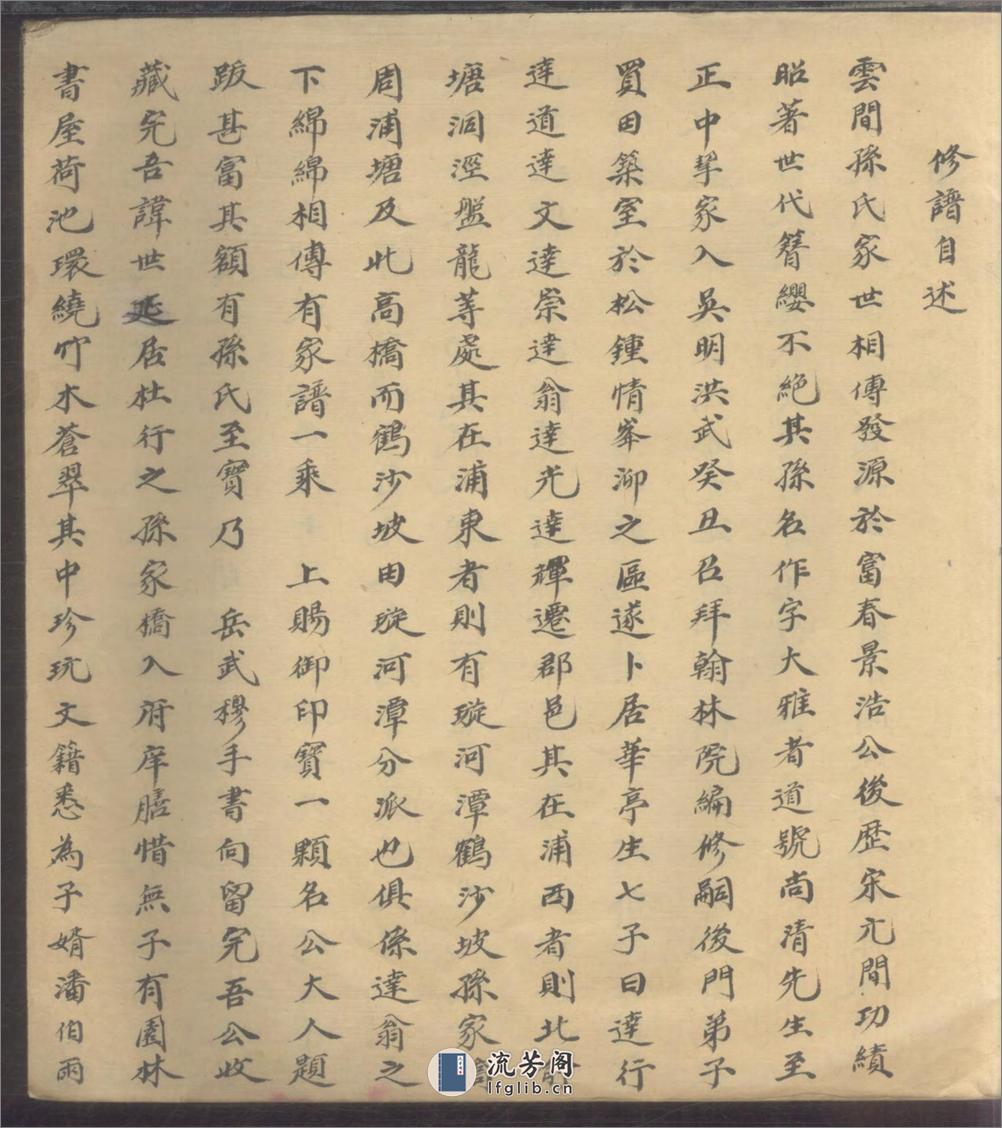 修譜自述
雲間孫氏家世相傳發源於富春景浩公後歷宋元間功績
昭著世代簪纓不絕其孫名作字大雅者道號尚清先生至
正中挈家入吳明洪武癸丑召拜翰林院編修嗣後門弟子
買田築室於松鍾情峯泖之區遂卜居華亭生七子曰達行
達道達文達崇達翁達光達輝遷郡邑其在浦西者則北
塘洞涇盤龍等處其在浦東者則有璇河潭鶴沙坡孫家
周浦塘及此高橋而鶴沙坡田璇河潭分派也俱係達翁之
下綿綿相傳有家譜一乘 上賜御印寶一顆名公大人題
跋甚富其額有孫氏至寶乃 岳武穆手書向留完吾公收
藏完吾諱世延居杜行之孫家橋入府庠膳惜無子有園林
書屋荷池環繞竹木蒼翠其中珍玩文籍悉為子婿潘伯雨
流芳阁
lfglib.cn